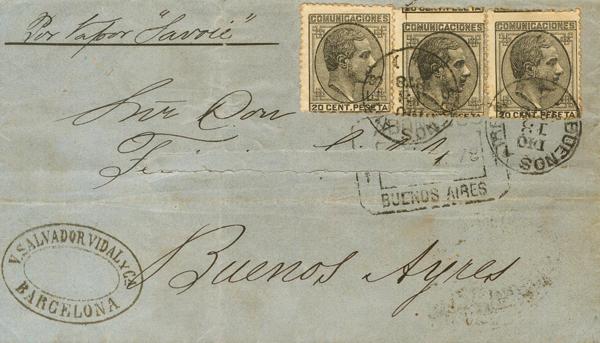 Por Vapor "Savoie"
CENT. PESETA
COMUNICACIONES
20 CENT. PESETA
COMUNICACIONES
CENT. PESETA
COMUNICACIONES
20 CENT. PESETA
Sñr Don
BUENOS AIRES
BUENOS
DIC
13
V. SALVADOR VIDAL Y CA
BARCELONA
Buenos Ayres